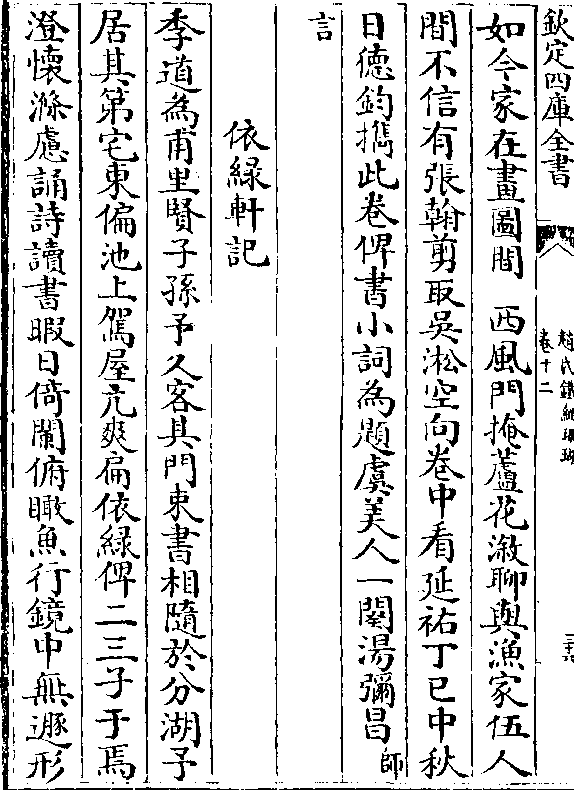 欽定四庫全書
趙氏鐵網珊瑚
卷十二
三十六
如今家在畫圖間　西風門掩蘆花溆聊與漁家伍人
間不信有張翰剪取吳淞空向卷中看延祐丁巳中秋
日德鈞攜此卷俾書小詞為題虞美人一闋湯彌昌師
言
依綠軒記
季道為甫里賢子孫予久客其門束書相隨於分湖子
居其第宅東偏池上駕屋亢爽扁依綠俾二三子于焉
澄懷滌慮誦詩讀書暇日倚闌俯瞰魚行鏡中無遯形